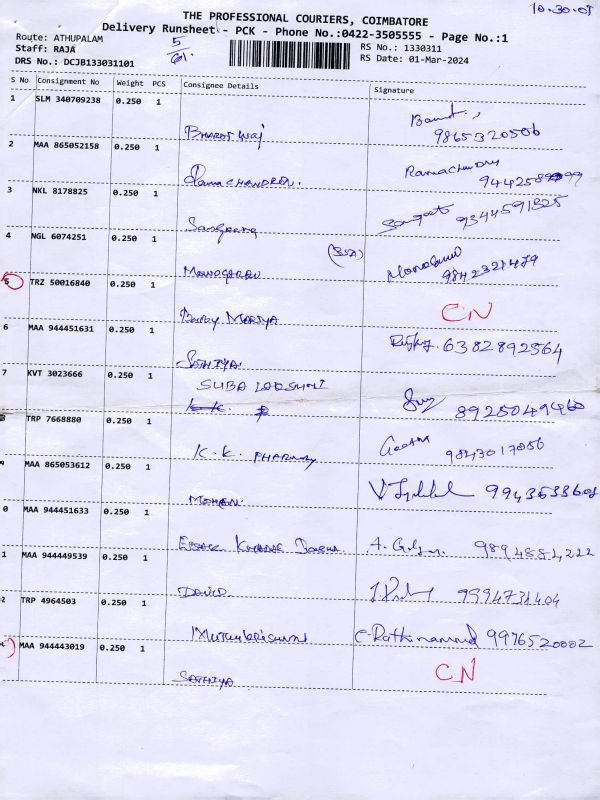 10-30-05
THE PROFESSIONAL COURIERS, COIMBATORE
Delivery Runsheet - PCK - Phone No.:0422-3505555 - Page No.:1
Route: ATHUPALAM
Staff: RAJA
DRS No.: DCJB133031101
5/61.
RS No.: 1330311
RS Date: 01-Mar-2024
S No Consignment No Weight PCS Consignee Details Signature
1 SLM 340709238 0.250 1
Bharat Waj 9865320506
2 MAA 865052158 0.250 1
Ramachandran. Ramachandran
3 NKL 8178825 0.250 1
Sangeetha Sangeeta 9344591825
4 NGL 6074251 0.250 1
Manogaran Manoharan 9842321479
5 TRZ 50016840 0.250 1 CN
Mariya
6 MAA 944451631 0.250 1
Sathiya 6382892564
7 KVT 3023666 0.250 1
SUBA LAKSHMI
K.K. 8925049460
TRP 7668880 0.250 1
K.K. PHARMACY 9843017056
MAA 865053612 0.250 1
Mohan
0 MAA 944451633 0.250 1
Kumar 9894884222
1 MAA 944449539 0.250 1
David 9994731404
TRP 4964503 0.250 1
Muthukrishnan C. Rathinammal 9976520002
MAA 944443019 0.250 1 CN
SATHIYA